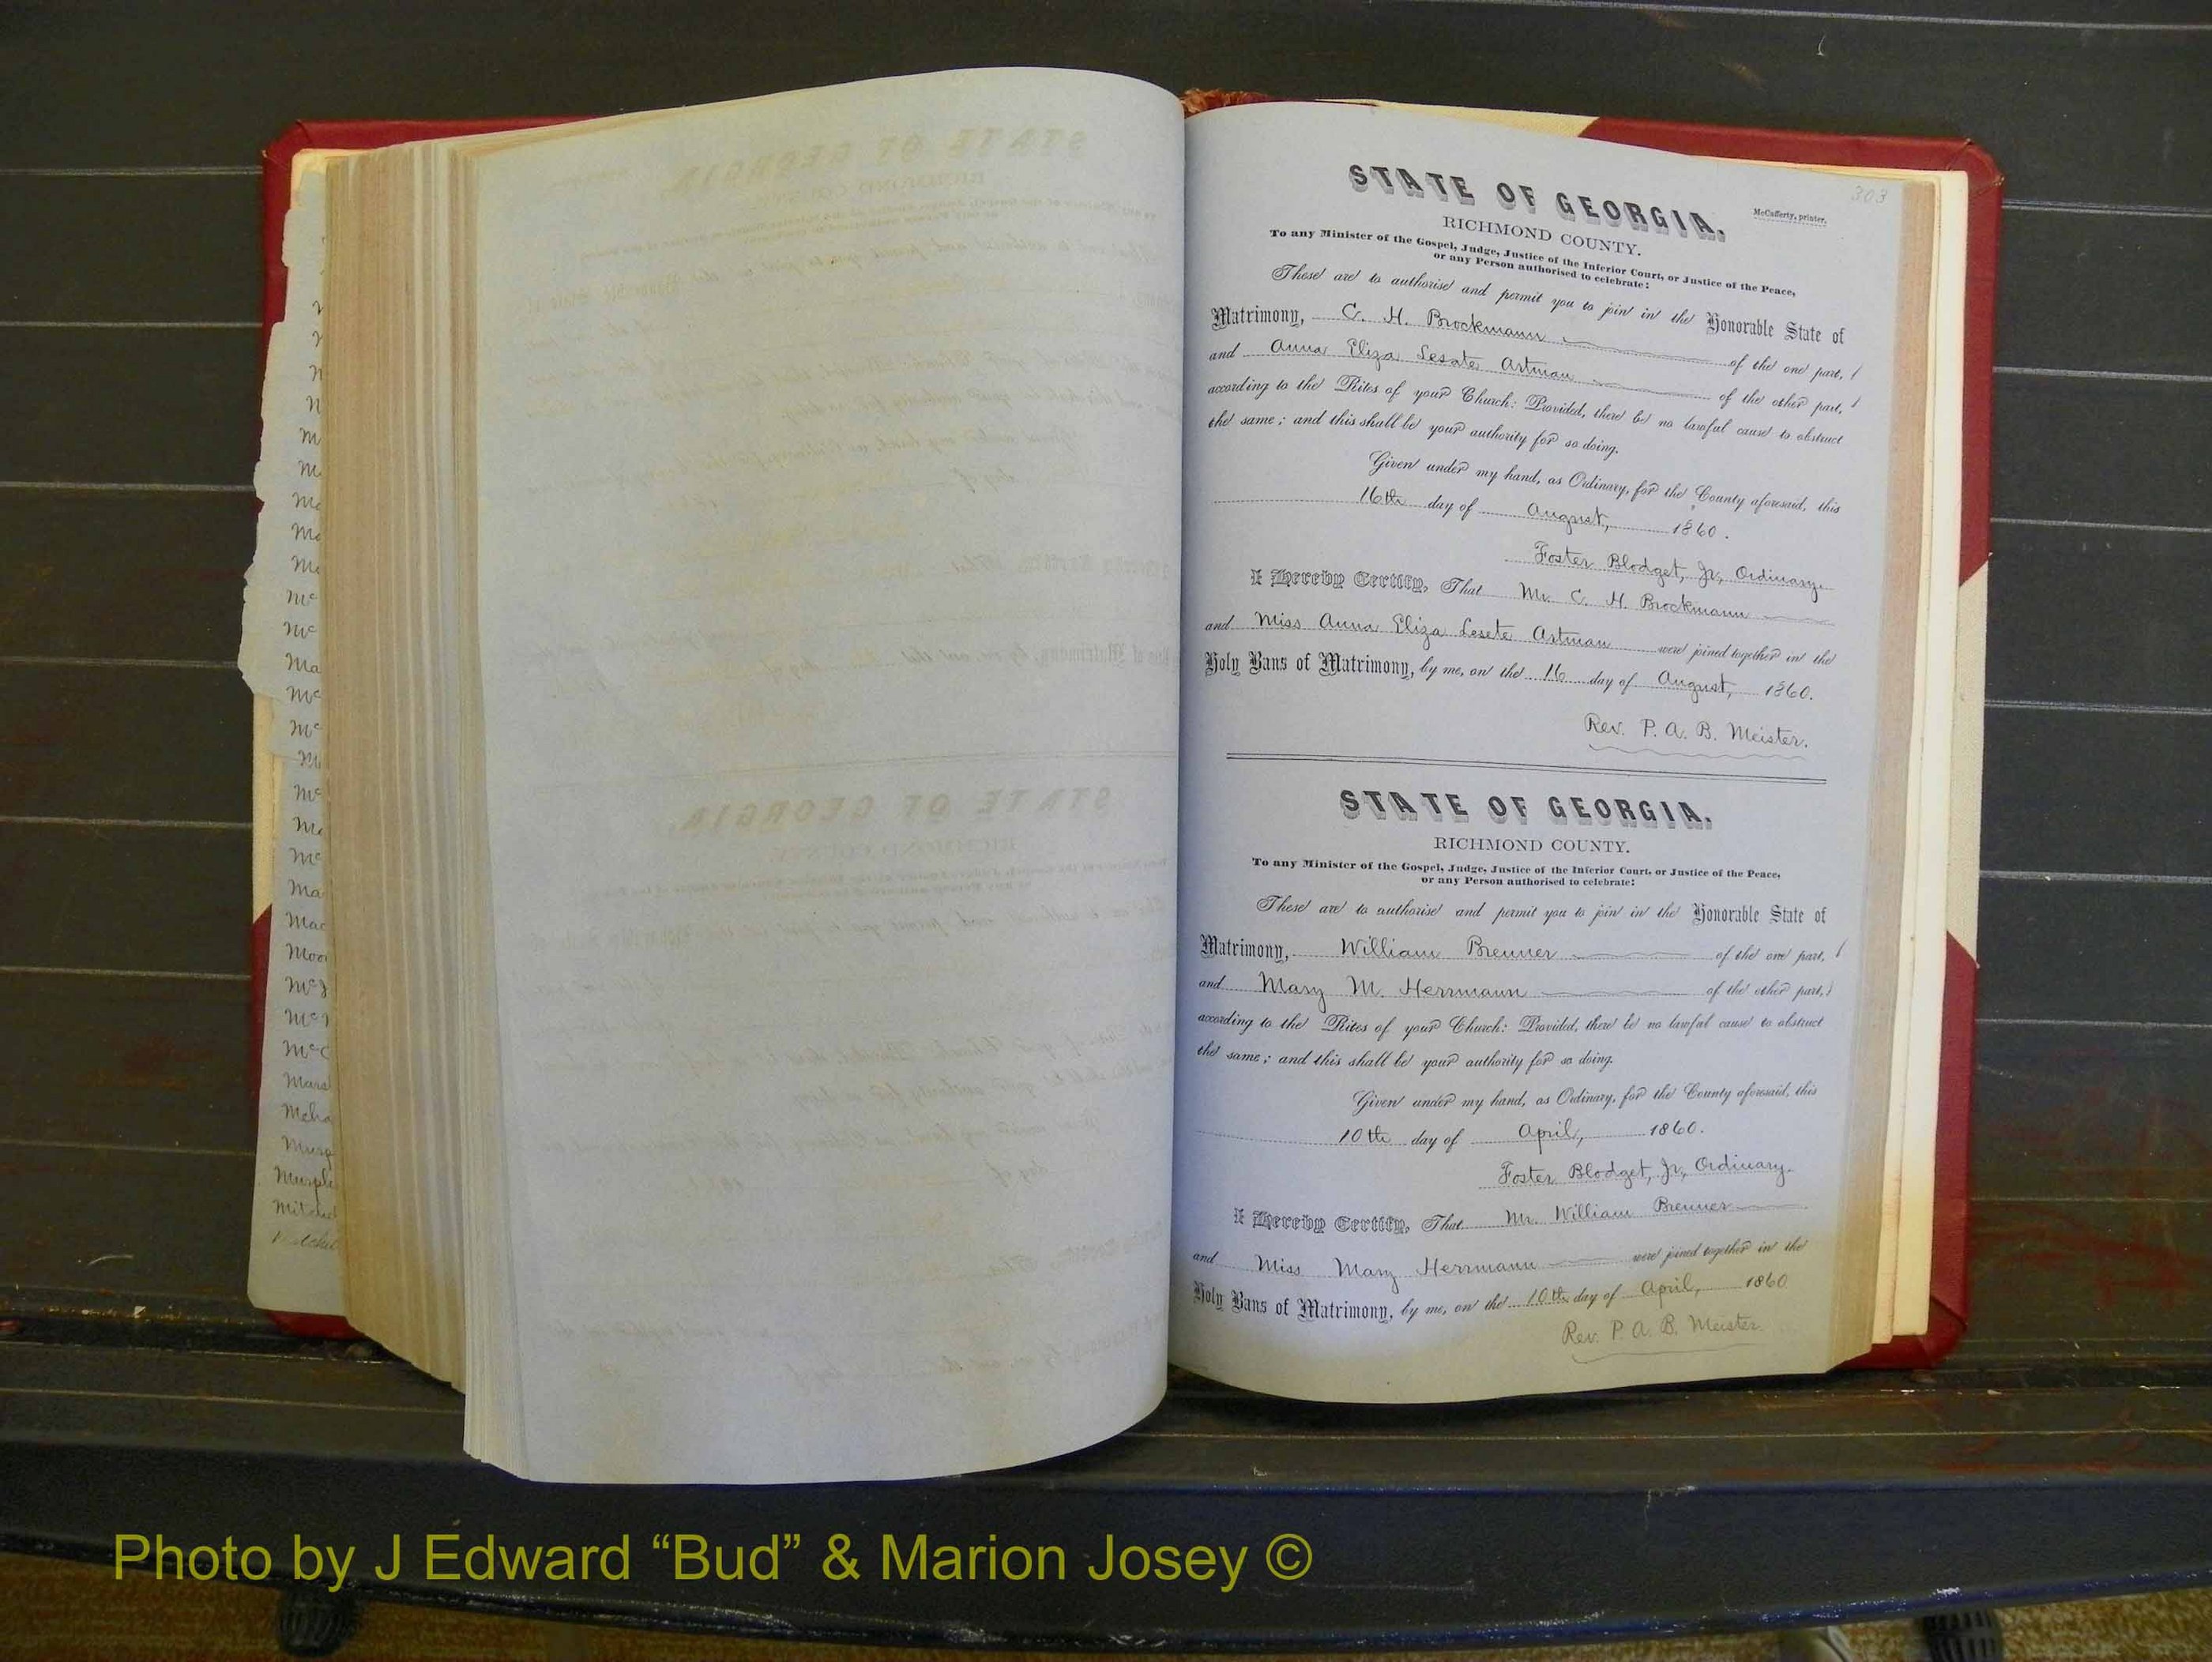 303
STATE OF GEORGIA.
McCafferty, printer.
RICHMOND COUNTY.
To any Minister of the Gospel, Judge, Justice of the Inferior Court, or Justice of the Peace,
or any Person authorised to celebrate:
These are to authorise and permit you to join in the Honorable State of
Matrimony, C. H. Brockmann of the one part,
and Anna Eliza Lesate Artman of the other part,
according to the Rites of your Church: Provided, there be no lawful cause to obstruct
the same; and this shall be your authority for so doing.
Given under my hand, as Ordinary, for the County aforesaid, this
16th day of August, 1860.
Foster Blodget, Jr, Ordinary.
I Hereby Certify, That Mr. C. H. Brockmann
and Miss Anna Eliza Lesete Artman were joined together in the
Holy Bans of Matrimony, by me, on the 16 day of August, 1860.
Rev. P. A. B. Meister.
STATE OF GEORGIA.
RICHMOND COUNTY.
To any Minister of the Gospel, Judge, Justice of the Inferior Court, or Justice of the Peace,
or any Person authorised to celebrate:
These are to authorise and permit you to join in the Honorable State of
Matrimony, William Brenner of the one part,
and Mary M. Herrmann of the other part,
according to the Rites of your Church: Provided, there be no lawful cause to obstruct
the same; and this shall be your authority for so doing.
Given under my hand, as Ordinary, for the County aforesaid, this
10th day of April, 1860.
Foster Blodget, Jr, Ordinary.
I Hereby Certify, That Mr. William Brenner
and Miss Mary Herrmann were joined together in the
Holy Bans of Matrimony, by me, on the 10th day of April, 1860
Rev. P. A. B. Meister.
Photo by J Edward “Bud” & Marion Josey ©